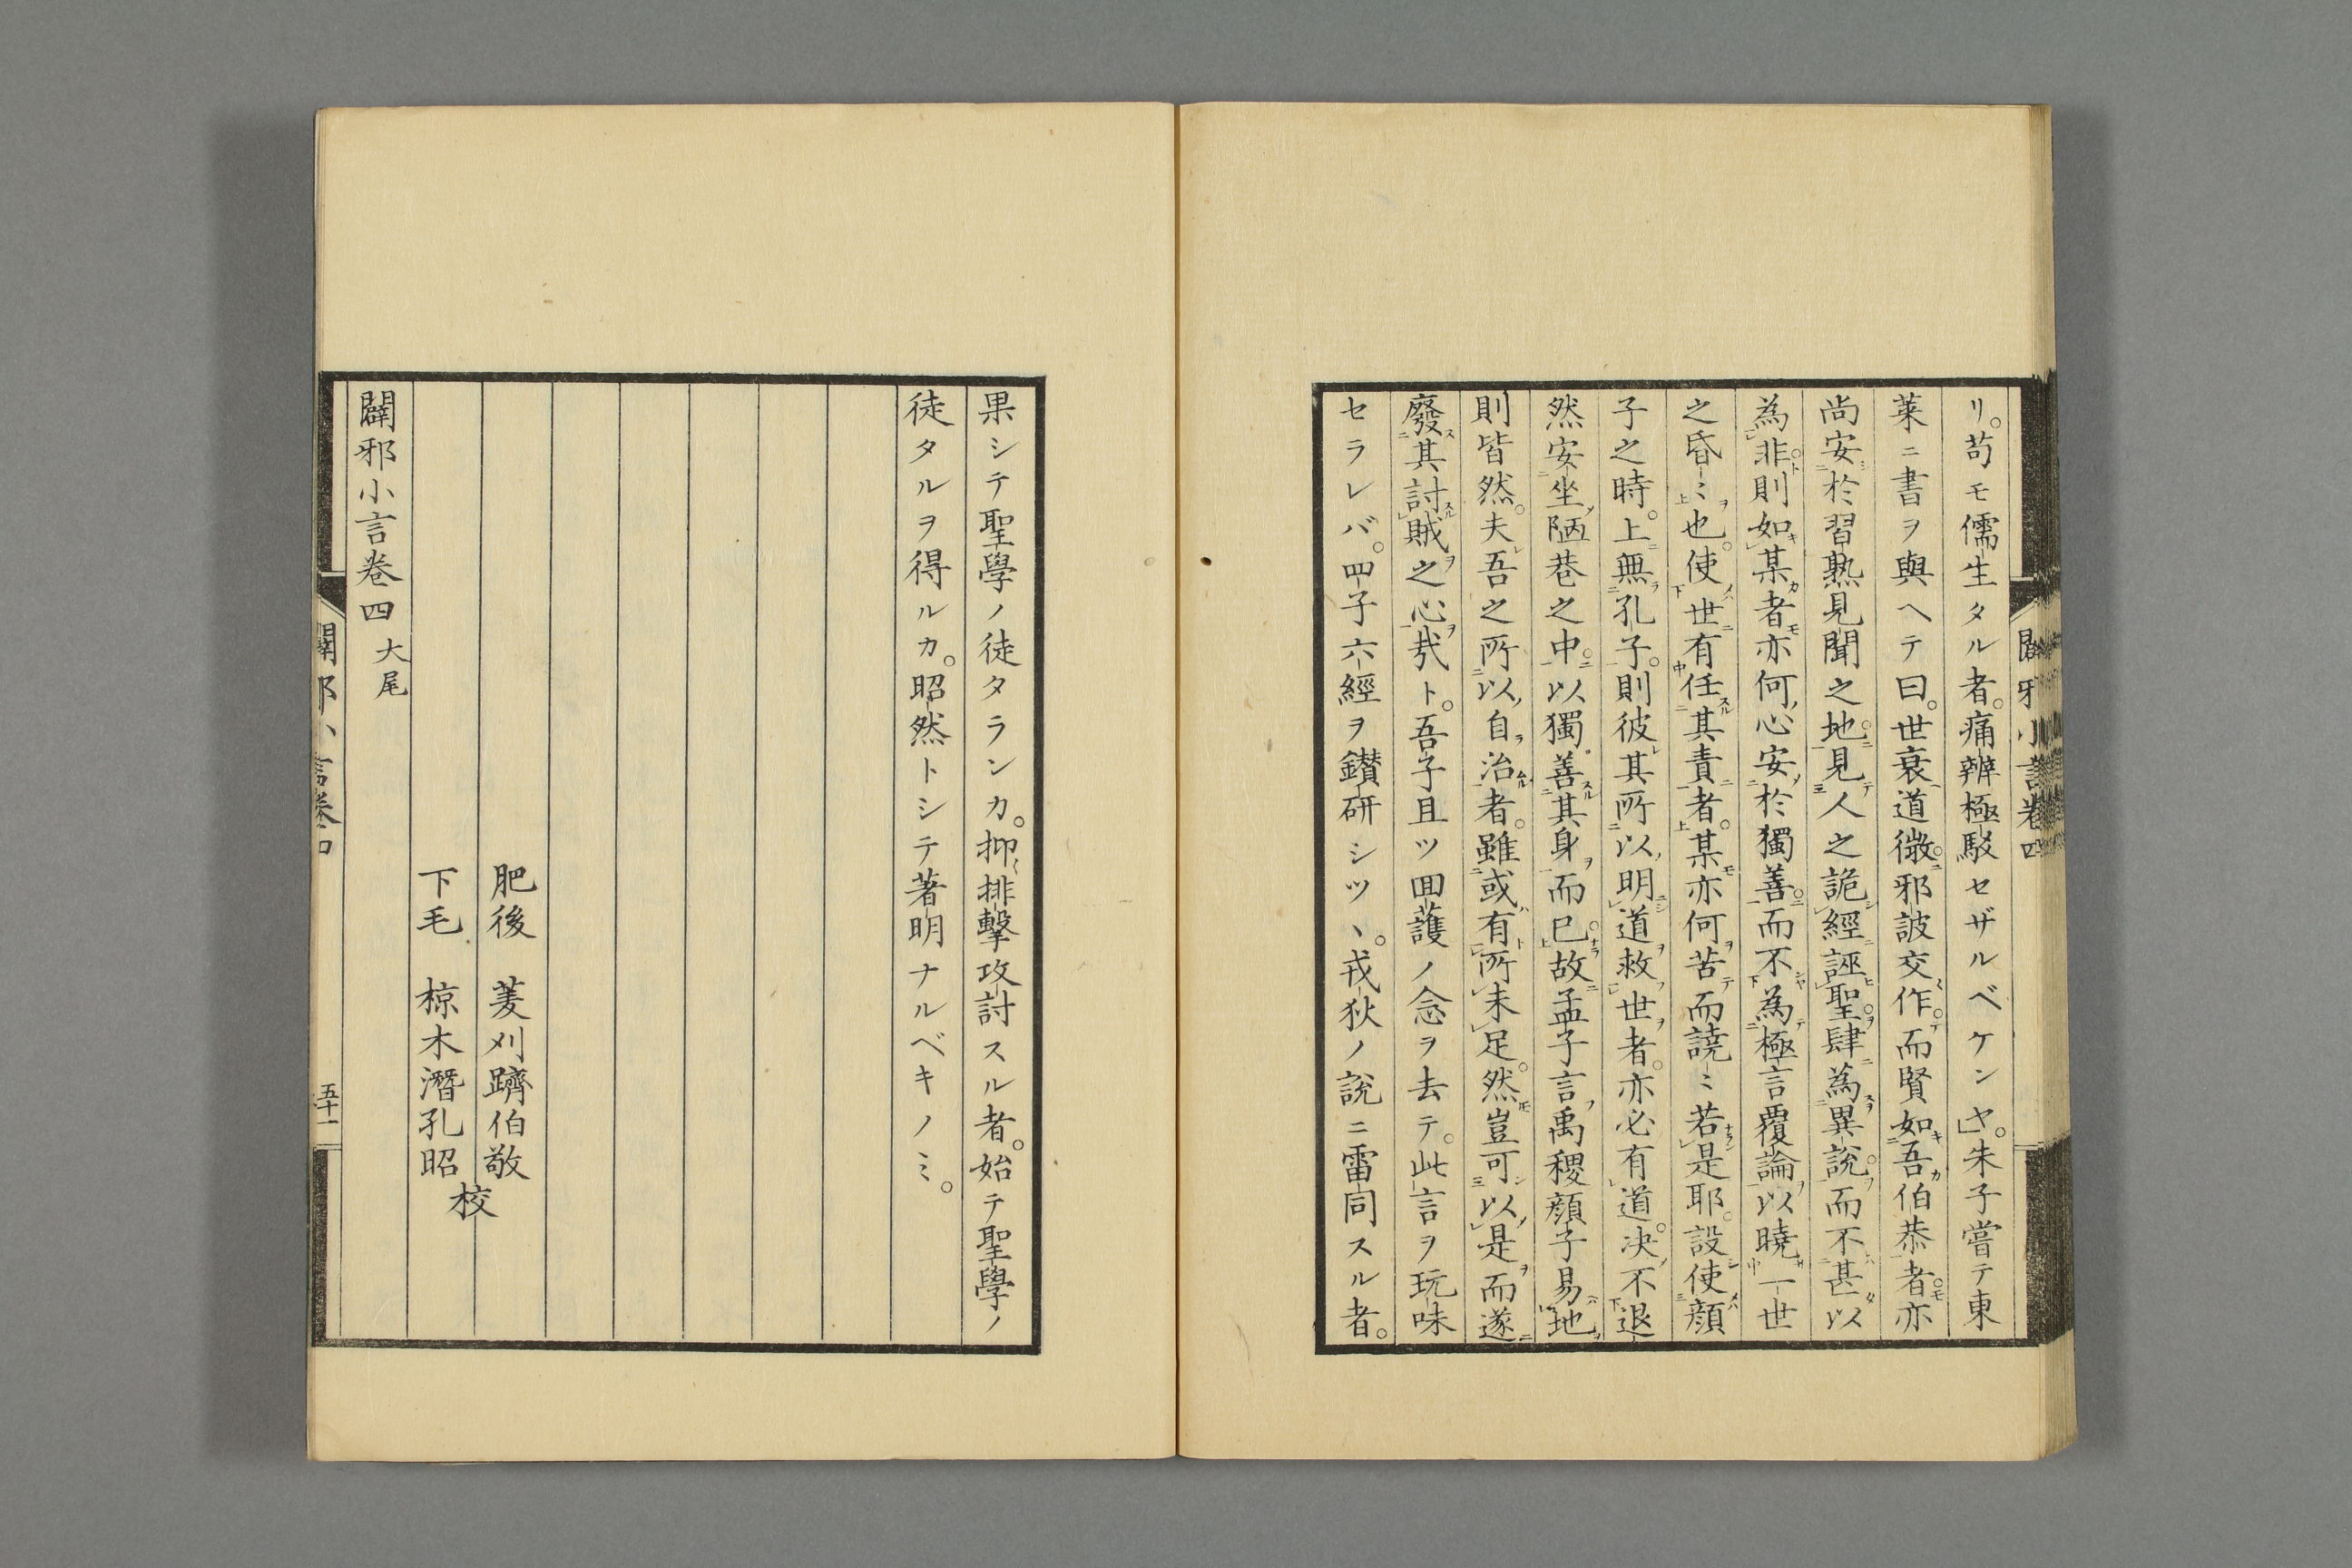 リ。苟モ儒生タル者。痛辨極駁セザルベケンヤ。」朱子嘗テ東
萊ニ書ヲ與ヘテ曰。世衰道微。邪詖交作。而賢如吾伯恭者。亦
尚安於習熟見聞之地。見人之詭經誣聖。肆為異説。而不甚以
為非。則如某者亦何心安於獨善。而不為極言覆論以曉一世
之昏〻也。使世有任其責者。某亦何苦而譊〻若是耶。設使顔
子之時。上無孔子。則彼其所以明道救世者。亦必有道。决不退
然安坐陋巷之中。以獨善其身而已。故孟子言禹稷顔子易地
則皆然。夫吾之所以自治者。雖或有所未足。然豈可以是而遂
廢其討賊之心哉ト。吾子且ツ回護ノ念ヲ去テ。此言ヲ玩味
セラレバ。四子六經ヲ鑚研シツヽ。戎狄ノ説ニ雷同スル者。
果シテ聖學ノ徒タランカ。抑〻排擊攻討スル者。始テ聖學ノ
徒タルヲ得ルカ。昭然トシテ著明ナルベキノミ。
肥後　菱刈躋伯敬
下毛　椋木潛孔昭
校
闢邪小言卷四 大尾
闢邪小言卷四
五十一